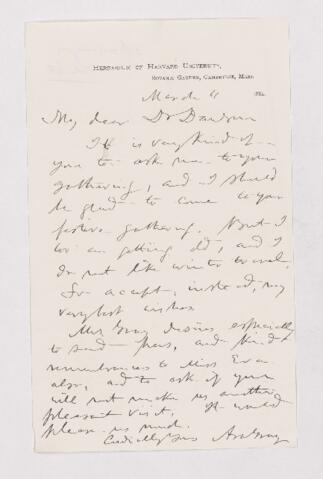 HERBARIUM OF HARVARD UNIVERSITY,
BOTANIC GARDEN, CAMBRIDGE, MASS.
March 4 188
My dear Dr
It is very kind of
you to ask me to your
gathering, and I should
be glad to come to your
festive gathering. But I
too am getting old, and I
do not like winter travel.
So accept, instead, my
very best wishes
Mrs Gray desires especially
to send hers, and kind
remembrances to Miss Eva
also, and to ask if you
will not make us another
pleasant visit. It would
please us much.
Cordially Yours Asa Gray